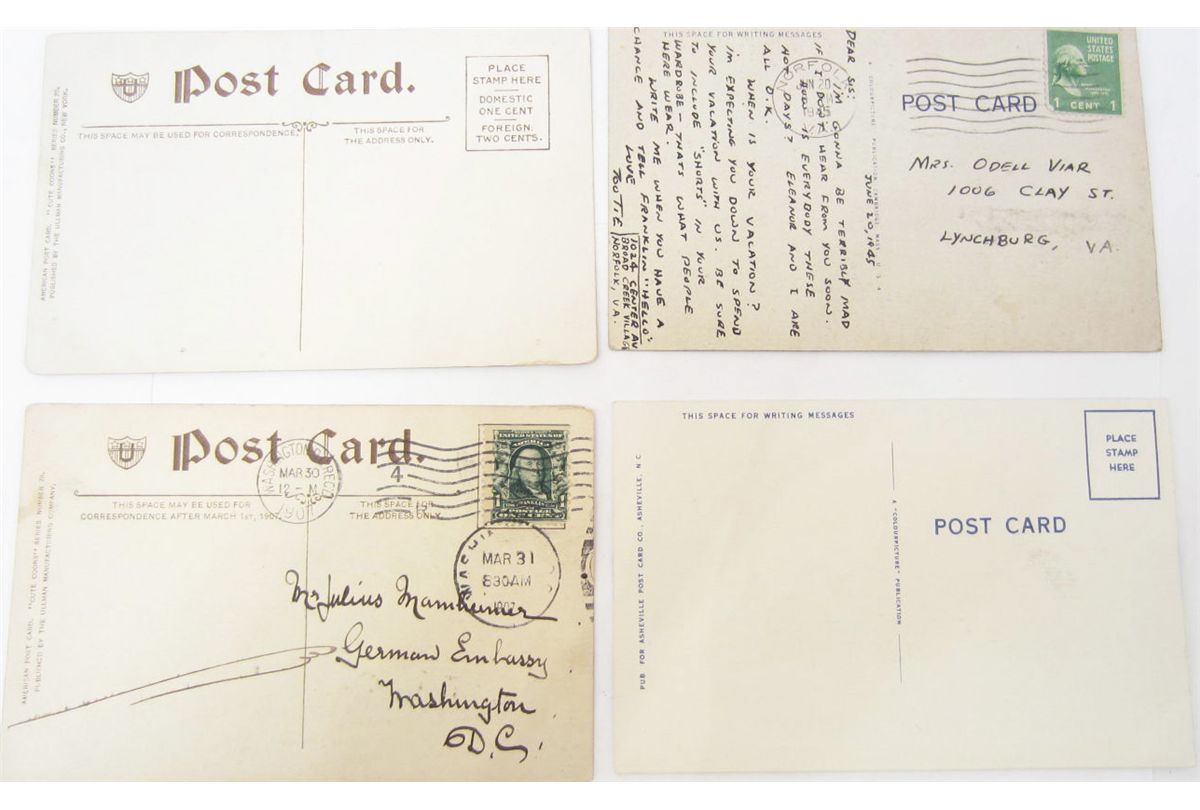 Post Card.
THIS SPACE MAY BE USED FOR CORRESPONDENCE.
THIS SPACE FOR
THE ADDRESS ONLY.
PLACE
STAMP HERE
DOMESTIC
ONE CENT
FOREIGN.
TWO CENTS.
AMERICAN POST CARD. "CUTE COONS" SERIES NUMBER 20.
PUBLISHED BY THE ULLMAN MANUFACTURING CO., NEW YORK.
THIS SPACE FOR WRITING MESSAGES
JUNE 20, 1945
DEAR SIS:
I'M GONNA BE TERRIBLY MAD
IF I DON'T HEAR FROM YOU SOON.
HOW IS EVERYBODY THESE
HOT DAYS? ELEANOR AND I ARE
ALL O.K.
WHEN IS YOUR VACATION?
I'M EXPECTING YOU DOWN TO SPEND
YOUR VACATION WITH US. BE SURE
TO INCLUDE "SHORTS" IN YOUR
WARDROBE - THATS WHAT PEOPLE
HERE WEAR.
WRITE ME WHEN YOU HAVE A
CHANCE AND TELL FRANKLIN "HELLO".
LOVE
TOUTIE
1024 CENTER AV
BROAD CREEK VILLAGE
NORFOLK, VA.
NORFOLK
POST CARD
UNITED
STATES
POSTAGE
1 CENT 1
MRS. ODELL VIAR
1006 CLAY ST.
LYNCHBURG, VA.
U
Post Card.
THIS SPACE MAY BE USED FOR
CORRESPONDENCE AFTER MARCH 1st, 1907.
THIS SPACE FOR
THE ADDRESS ONLY.
WASHINGTON
MAR 30
12-M
1907
4
UNITED STATES OF
AMERICA
MAR 31
8 30 AM
1907
AMERICAN POST CARD. "CUTE COONS" SERIES NUMBER 20.
PUBLISHED BY THE ULLMAN MANUFACTURING COMPANY,
Mr Julius Mannheimer
German Embassy
Washington
D.C.
THIS SPACE FOR WRITING MESSAGES
PLACE
STAMP
HERE
POST CARD
PUB FOR ASHEVILLE POST CARD CO., ASHEVILLE, N.C.
A "COLOURPICTURE" PUBLICATION